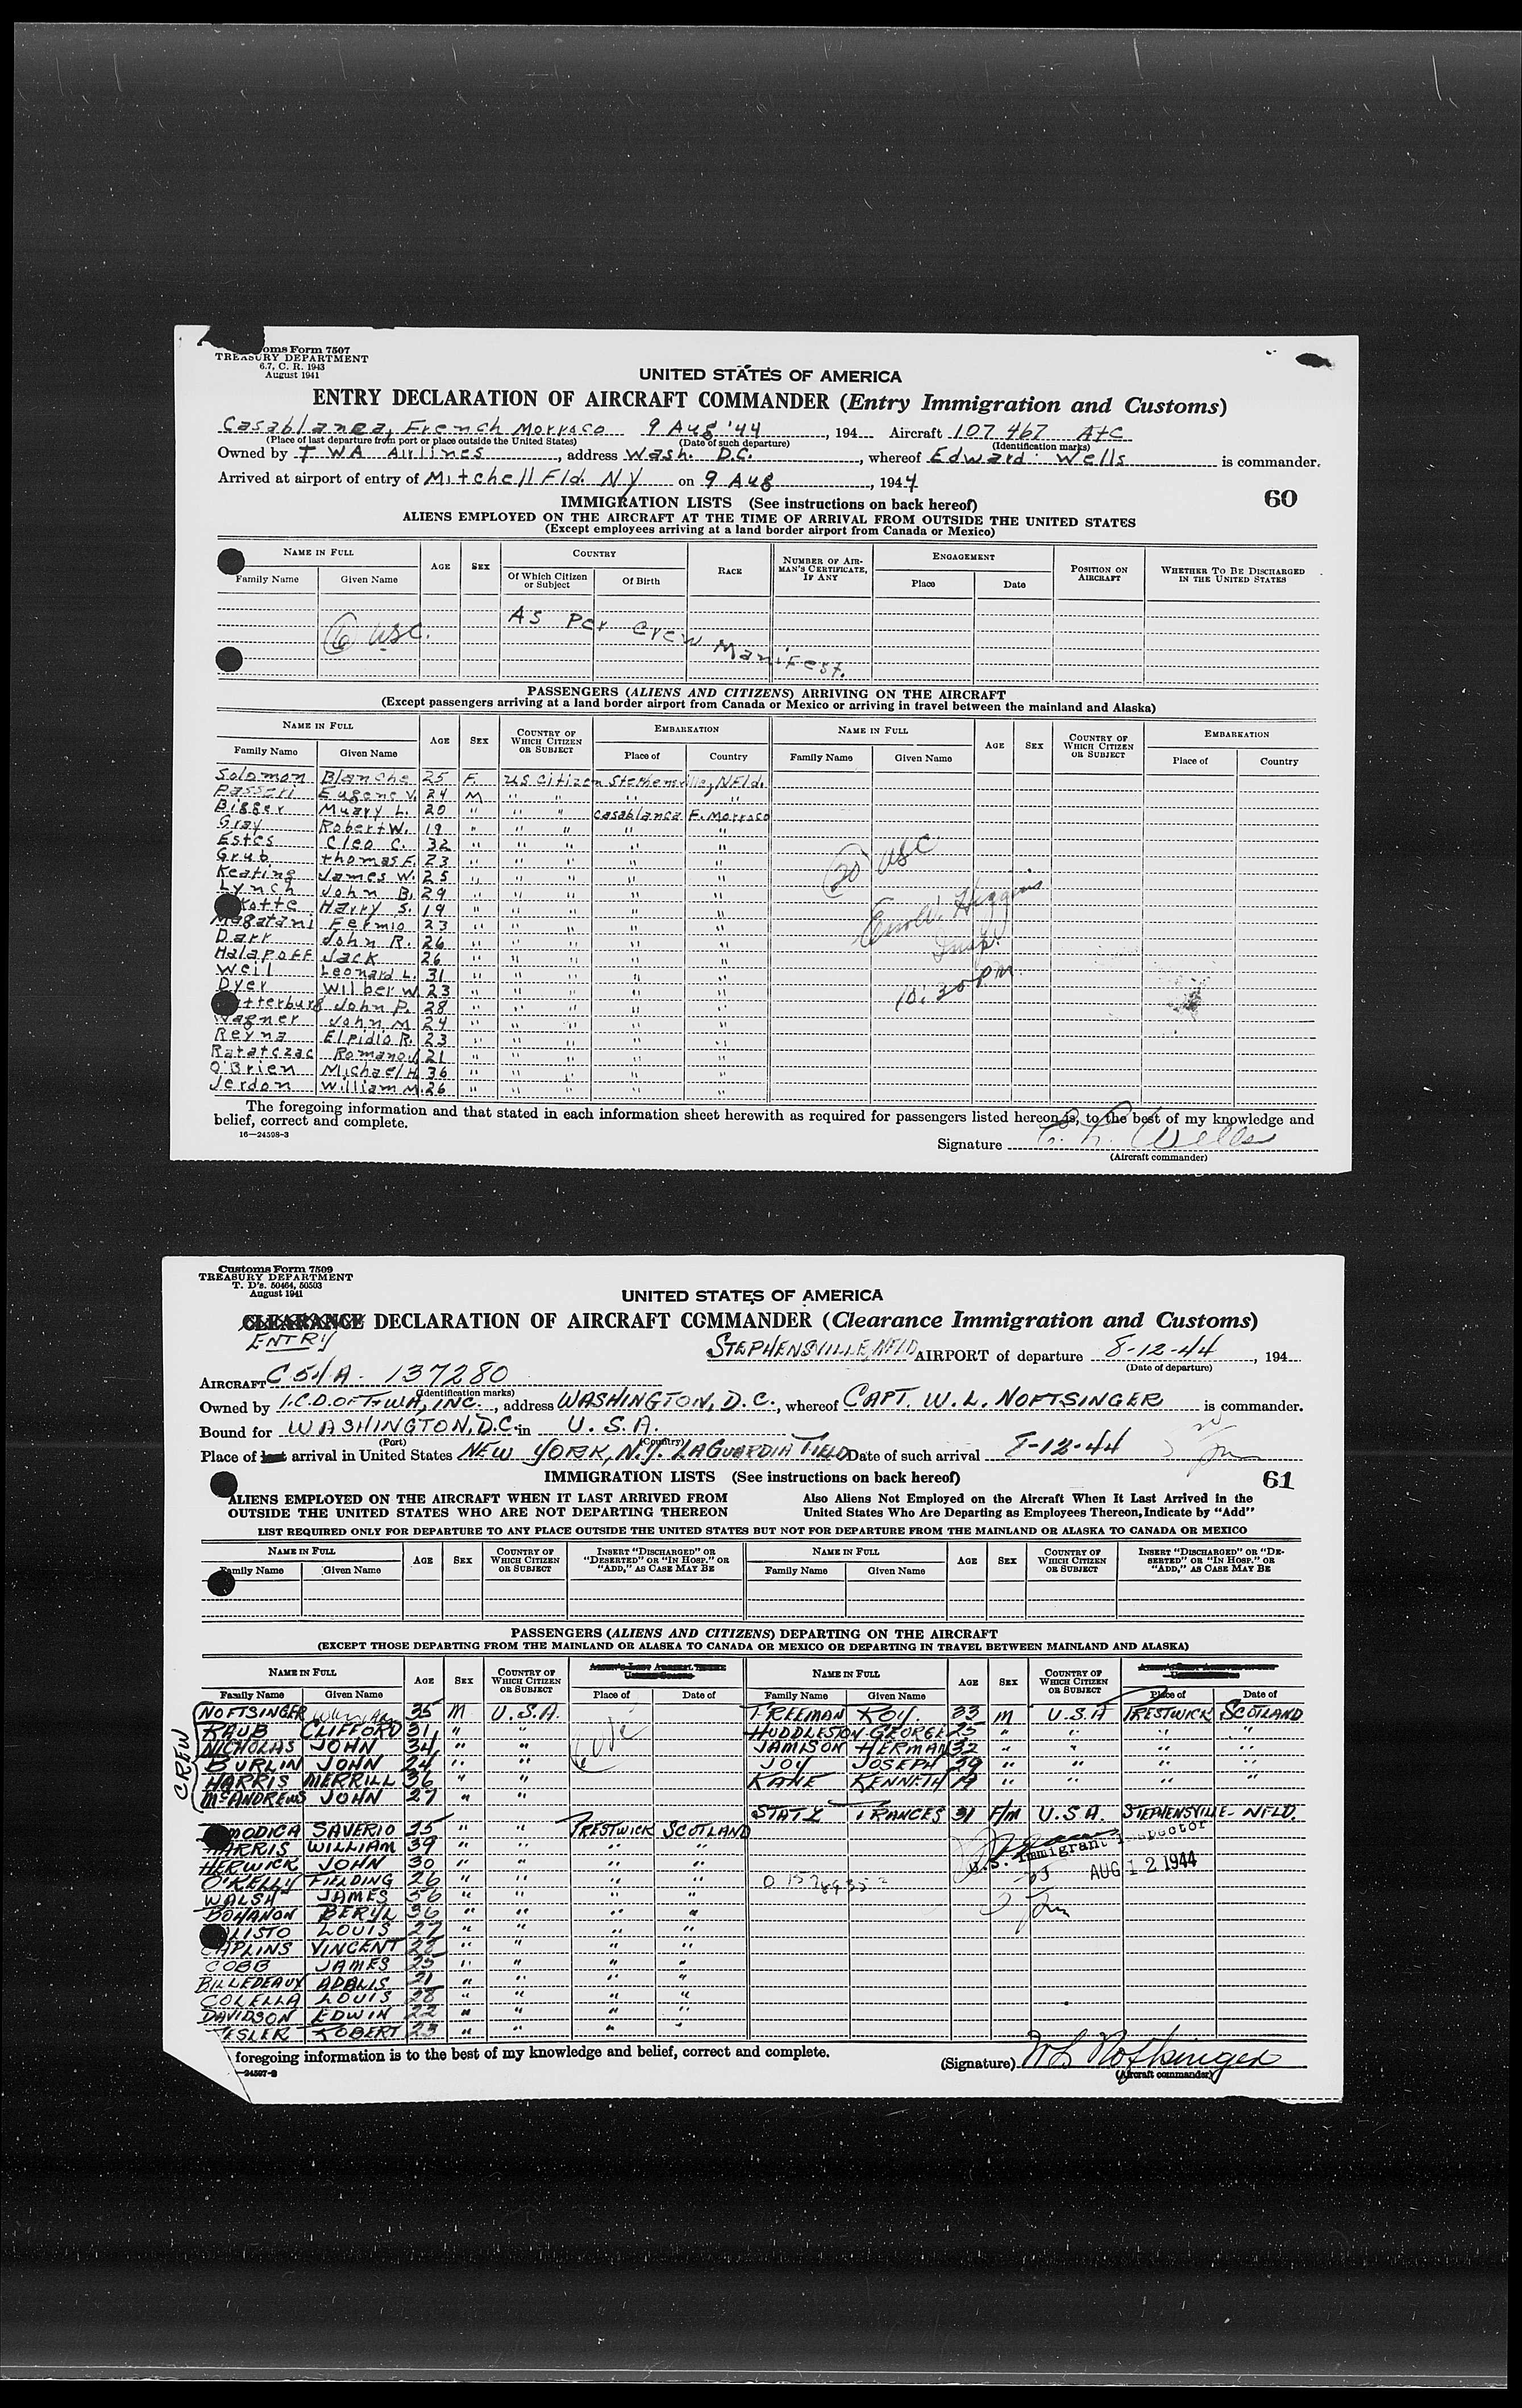 oms Form 7507
TREASURY DEPARTMENT
6.7, C. R. 1943
August 1941
UNITED STATES OF AMERICA
ENTRY DECLARATION OF AIRCRAFT COMMANDER (Entry Immigration and Customs)
Casablanca, French Morraco 9 Aug '44, 194 Aircraft 107 467 AtC
(Place of last departure from port or place outside the United States) (Date of such departure) (Identification marks)
Owned by T WA Airlines, address Wash. D.C., whereof Edward Wells is commander.
Arrived at airport of entry of Mitchell Fld. NY on 9 Aug, 1944
IMMIGRATION LISTS (See instructions on back hereof) 60
ALIENS EMPLOYED ON THE AIRCRAFT AT THE TIME OF ARRIVAL FROM OUTSIDE THE UNITED STATES
(Except employees arriving at a land border airport from Canada or Mexico)
NAME IN FULL AGE SEX COUNTRY RACE NUMBER OF AIRMAN'S CERTIFICATE, IF ANY ENGAGEMENT POSITION ON AIRCRAFT WHETHER TO BE DISCHARGED IN THE UNITED STATES
Family Name Given Name Of Which Citizen or Subject Of Birth Place Date
6 USC. As Per Crew Manifest.
PASSENGERS (ALIENS AND CITIZENS) ARRIVING ON THE AIRCRAFT
(Except passengers arriving at a land border airport from Canada or Mexico or arriving in travel between the mainland and Alaska)
NAME IN FULL AGE SEX COUNTRY OF WHICH CITIZEN OR SUBJECT EMBARKATION NAME IN FULL AGE SEX COUNTRY OF WHICH CITIZEN OR SUBJECT EMBARKATION
Family Name Given Name Place of Country Family Name Given Name Place of Country
Solomon Blanche 25 F. US Citizen Stephenville, NFld.
Passeri Eugene V. 24 M " " " "
Bigger Muary L. 20 " " " Casablanca F. Morraco
Gray Robert W. 19 " " " " "
Estes Cleo C. 32 " " " " "
Grub thomas F. 23 " " " " "
Keating James W. 25 " " " " "
Lynch John B. 29 " " " " "
Kotte Harry S. 19 " " " " "
Magatani Fermio 23 " " " " "
Darr John R. 26 " " " " "
Halapoff Jack 26 " " " " "
Weil Leonard L. 31 " " " " "
Dyer Wilber W. 23 " " " " "
tterburg John P. 28 " " " " "
Wagner John M 24 " " " " "
Reyna Elpidio R. 23 " " " " "
Ratatczac Romano J 21 " " " " "
O'Brien Michael H 36 " " " " "
Jerdon William M. 26 " " " " "
20 USC
Higgins
Insp.
10:30 PM
The foregoing information and that stated in each information sheet herewith as required for passengers listed hereon is, to the best of my knowledge and
belief, correct and complete.
16—24598-3
Signature Wells
(Aircraft commander)
Customs Form 7509
TREASURY DEPARTMENT
T. D's. 50464, 50503
August 1941
UNITED STATES OF AMERICA
CLEARANCE DECLARATION OF AIRCRAFT COMMANDER (Clearance Immigration and Customs)
ENTRY
STEPHENSVILLE, NFLD AIRPORT of departure 8-12-44, 194
(Date of departure)
AIRCRAFT C54A - 137280
(Identification marks)
Owned by I.C.D. OF T+WA, INC., address WASHINGTON, D.C., whereof CAPT. W. L. NOFTSINGER is commander.
Bound for WASHINGTON, D.C. in U.S.A.
(Port) (Country)
Place of last arrival in United States NEW YORK, N.Y. LAGUARDIA FIELD Date of such arrival 8-12-44
IMMIGRATION LISTS (See instructions on back hereof) 61
ALIENS EMPLOYED ON THE AIRCRAFT WHEN IT LAST ARRIVED FROM
OUTSIDE THE UNITED STATES WHO ARE NOT DEPARTING THEREON
Also Aliens Not Employed on the Aircraft When It Last Arrived in the
United States Who Are Departing as Employees Thereon, Indicate by "Add"
LIST REQUIRED ONLY FOR DEPARTURE TO ANY PLACE OUTSIDE THE UNITED STATES BUT NOT FOR DEPARTURE FROM THE MAINLAND OR ALASKA TO CANADA OR MEXICO
NAME IN FULL AGE SEX COUNTRY OF WHICH CITIZEN OR SUBJECT INSERT "DISCHARGED" OR "DESERTED" OR "IN HOSP." OR "ADD," AS CASE MAY BE NAME IN FULL AGE SEX COUNTRY OF WHICH CITIZEN OR SUBJECT INSERT "DISCHARGED" OR "DESERTED" OR "IN HOSP." OR "ADD," AS CASE MAY BE
Family Name Given Name Family Name Given Name
PASSENGERS (ALIENS AND CITIZENS) DEPARTING ON THE AIRCRAFT
(EXCEPT THOSE DEPARTING FROM THE MAINLAND OR ALASKA TO CANADA OR MEXICO OR DEPARTING IN TRAVEL BETWEEN MAINLAND AND ALASKA)
NAME IN FULL AGE SEX COUNTRY OF WHICH CITIZEN OR SUBJECT NAME IN FULL AGE SEX COUNTRY OF WHICH CITIZEN OR SUBJECT
Family Name Given Name Place of Date of Family Name Given Name Place of Date of
CREW
NOFTSINGER William 35 M U.S.A. FREEMAN ROY 33 M U.S.A PRESTWICK SCOTLAND
RAUB CLIFFORD 31 " " HUDDLESTON GEORGE 25 " " " "
NICHOLAS JOHN 34 " " JAMISON HERMAN 32 " " " "
BURLIN JOHN 24 " " JOY JOSEPH 39 " " " "
HARRIS MERRILL 36 " " KANE KENNETH 19 " " " "
McANDREWS JOHN 27 " "
STATI FRANCES 31 F/M U.S.A. STEPHENSVILLE - NFLD.
MODICA SAVERIO 25 " " PRESTWICK SCOTLAND
HARRIS WILLIAM 39 " " " "
HERWICK JOHN 30 " " " "
O'KELLY FIELDING 26 " " " "
WALSH JAMES 56 " " " "
BOHANON BERYL 36 " " " "
LISTO LOUIS 27 " " " "
CAPLINS VINCENT 28 " " " "
COBB JAMES 25 " " " "
BILLEDEAUX ADALIS 21 " " " "
COLELLA LOUIS 28 " " " "
DAVIDSON EDWIN 22 " " " "
ESLER ROBERT 23 " " " "
U.S. Immigrant Inspector
AUG 12 1944
foregoing information is to the best of my knowledge and belief, correct and complete.
—24597-2
(Signature) W L Noftsinger
(Aircraft commander)